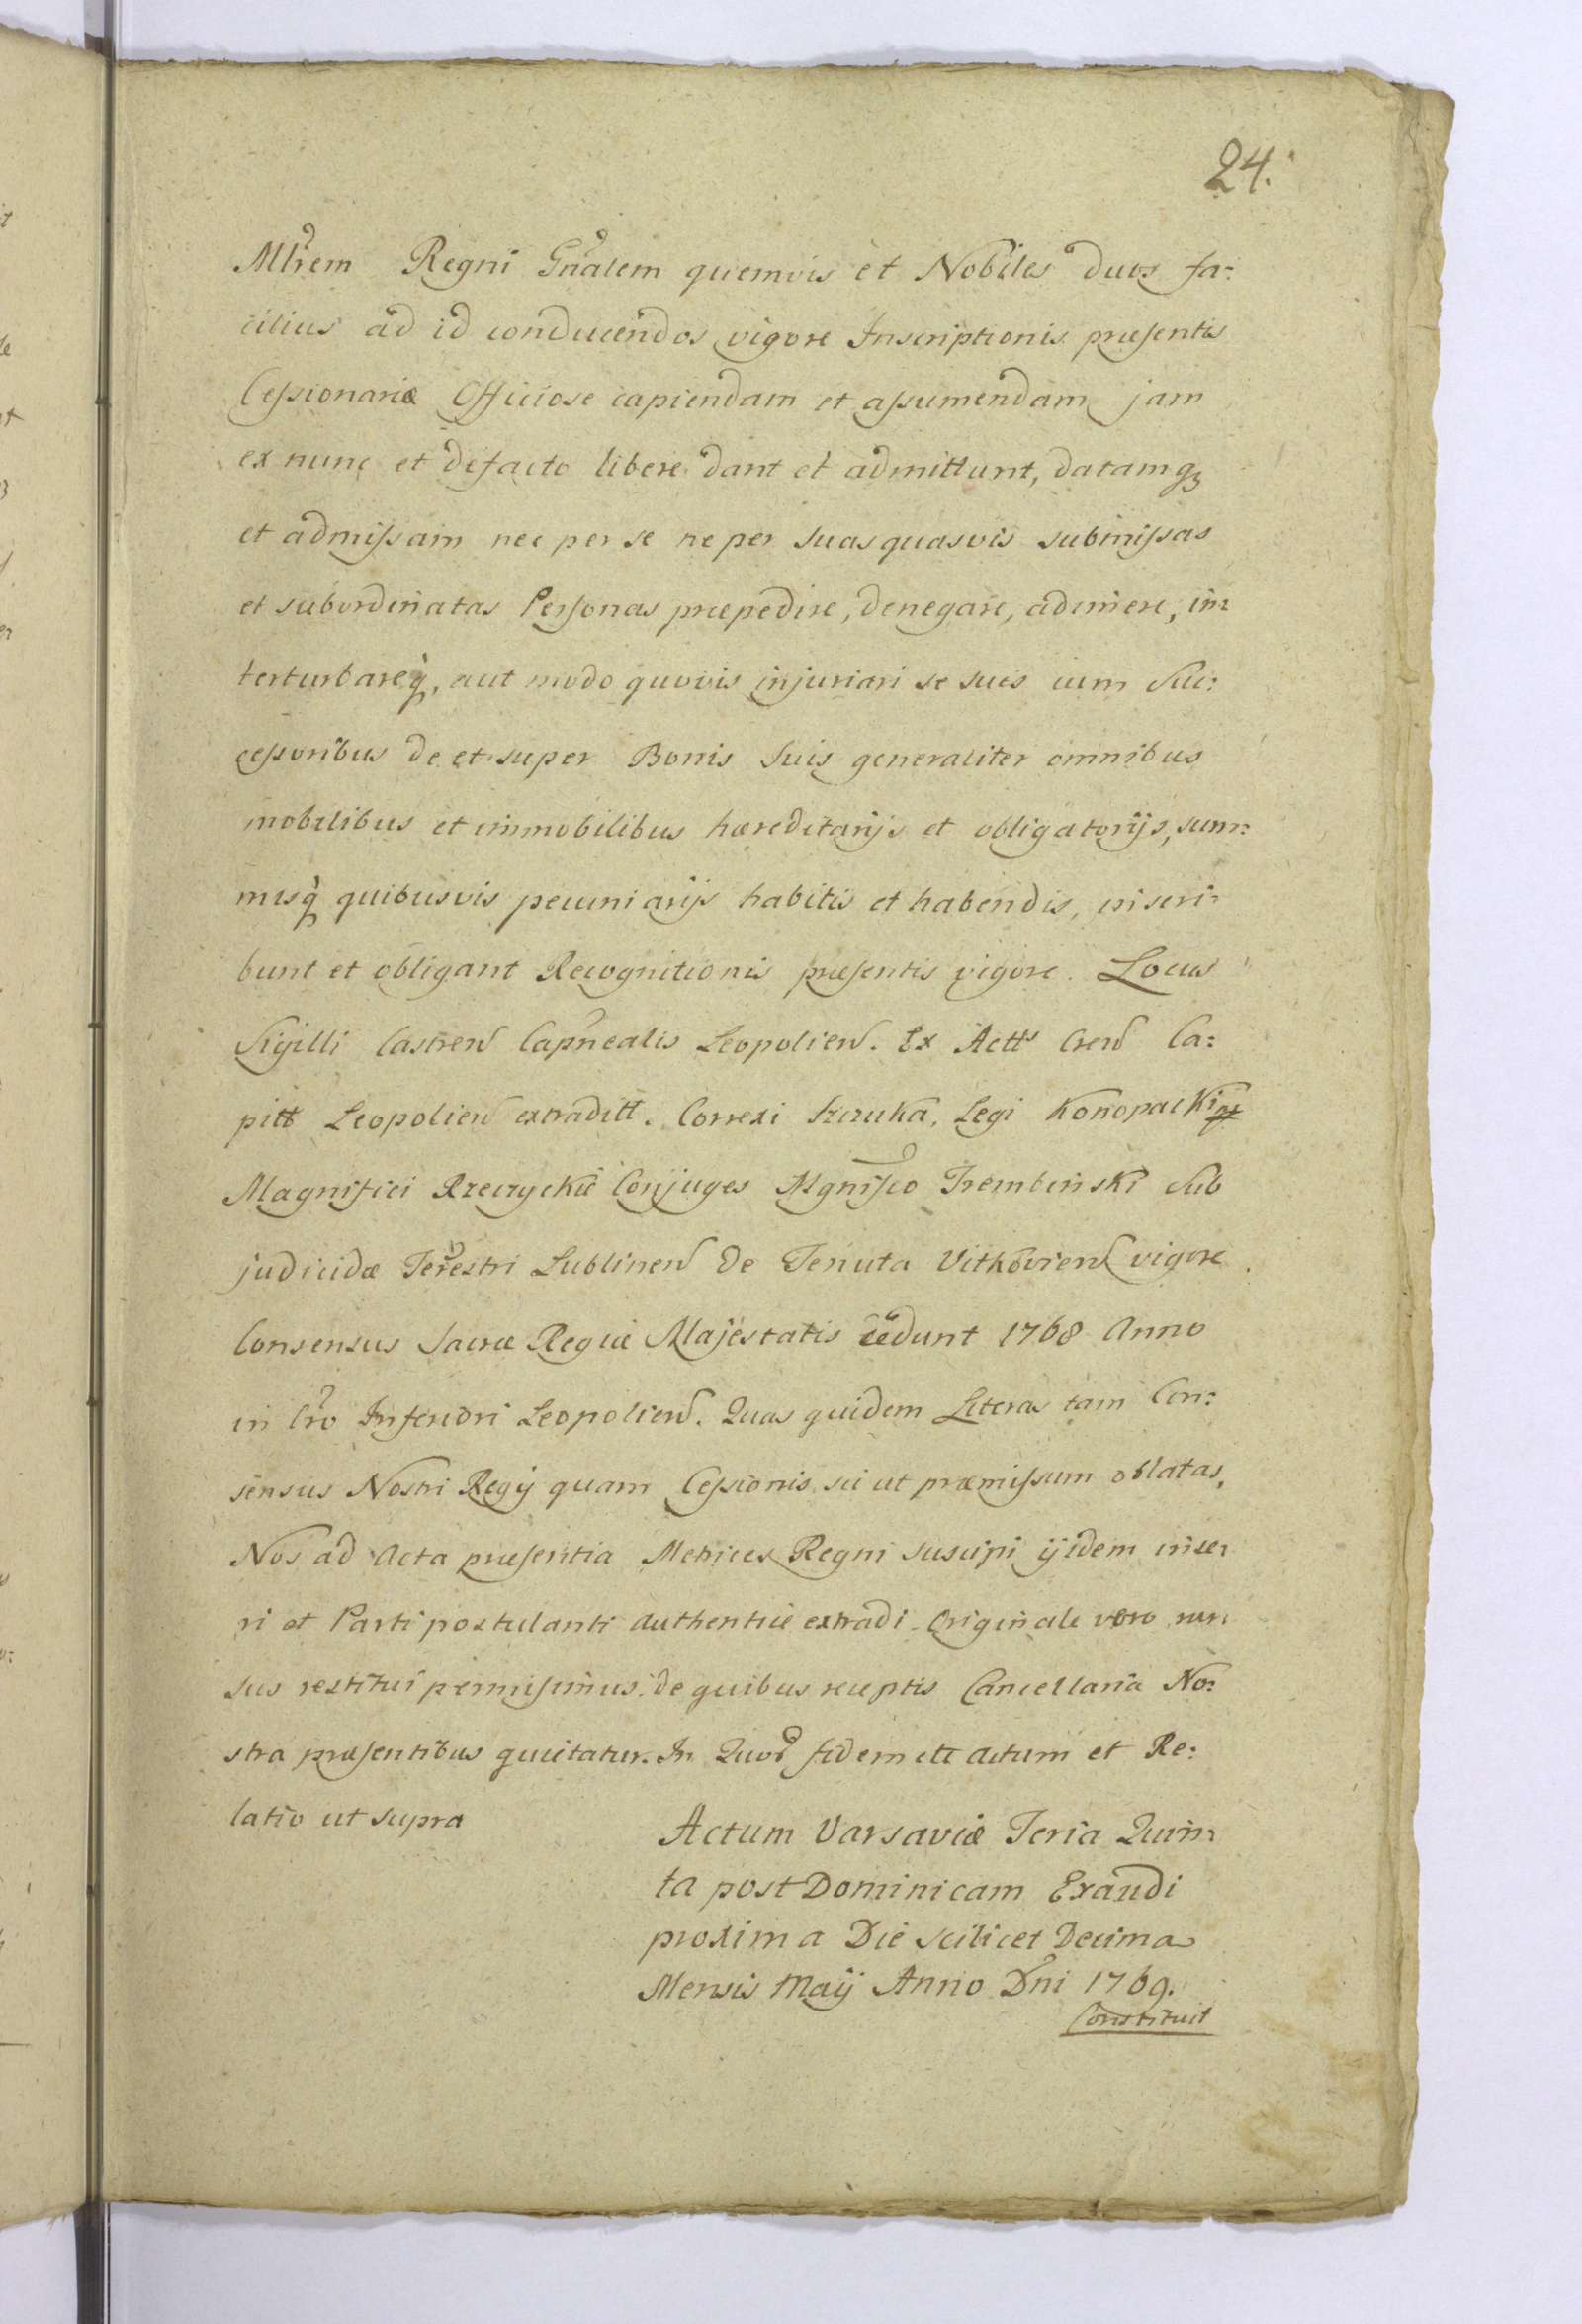 24.
Mlrem Regni Gnalem quemvis et Nobiles duos fa:
cilius ad id conducendos vigore Inscriptionis præsentis
Cessionariæ Officiose capiendam et assumendam jam
ex nunc et defacto libere dant et admittunt, datamq3
et admissam nec per se ne per suas quasvis submissas
et subordinatas Personas præpedire, denegare, adimere, in:
terturbareq, aut modo quovis injuriari se suis cum Suc:
cessoribus de et super Bonis Suis generaliter omnibus
mobilibus et immobilibus hæreditarijs et obligatorijs, sum:
misq quibusvis pecuniarijs habitis et habendis, inscri:
bunt et obligant Recognitionis præsentis vigore. Locus
Sigilli Castren Capnealis Leopolien. Ex Actts Cren Ca:
pitt Leopolien extraditt. Correxi Szczuka, Legi Konopacki
Magnifici Rzeczyckie Conjuges Mgnifco Trembinski Sub
judicidæ Terestri Lublinen de Tenuta Vitkovien vigore
Consensus Sacræ Regiæ Majestatis cedunt 1768 Anno
in Cro Inferiori Leopolien. Quas quidem Literas tam Con:
sensus Nostri Regij quam Cessionis sic ut præmissum oblatas,
Nos ad Acta præsentia Metrices Regni suscipi ijsdem inse:
ri et Parti postulanti authentice extradi Originale vero rur:
sus restitui permisimus. de quibus receptis Cancellaria No:
stra præsentibus quietatur. In Quor fidem ett Actum et Re:
latio ut supra
Actum Varsaviæ Feria Quin:
ta post Dominicam Exaudi
proxima Die scilicet Decima
Mensis Maij Anno Dni 1769.
Constituit